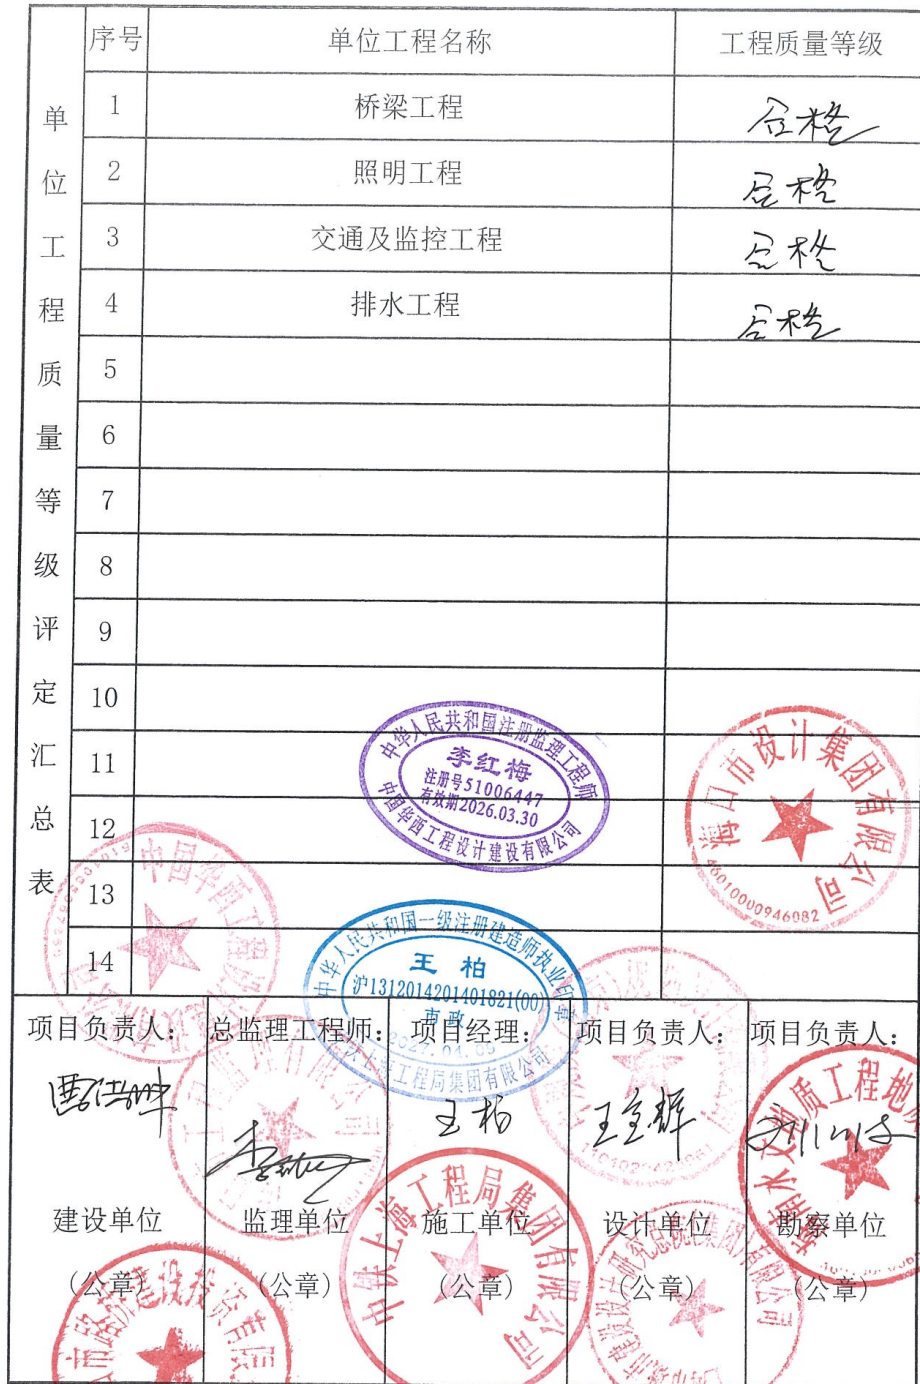 单位工程质量等级评定汇总表
序号 单位工程名称 工程质量等级
1 桥梁工程 合格
2 照明工程 合格
3 交通及监控工程 合格
4 排水工程 合格
5
6
7
8
9
10
11
12
13
14
中华人民共和国注册监理工程师
李红梅
注册号51006447
有效期2026.03.30
中国华西工程设计建设有限公司
海口市设计集团有限公司
46010000946082
中国华西工程设计建设
中华人民共和国一级注册建造师执业印章
王柏
沪1312014201401821(00)
市政
上海工程局集团有限公司
项目负责人: 总监理工程师: 项目经理: 项目负责人: 项目负责人:
王柏
建设单位 监理单位 施工单位 设计单位 勘察单位
(公章) (公章) (公章) (公章) (公章)
市路桥建设投资有限
中铁上海工程局集团有限公司
水文地质工程地